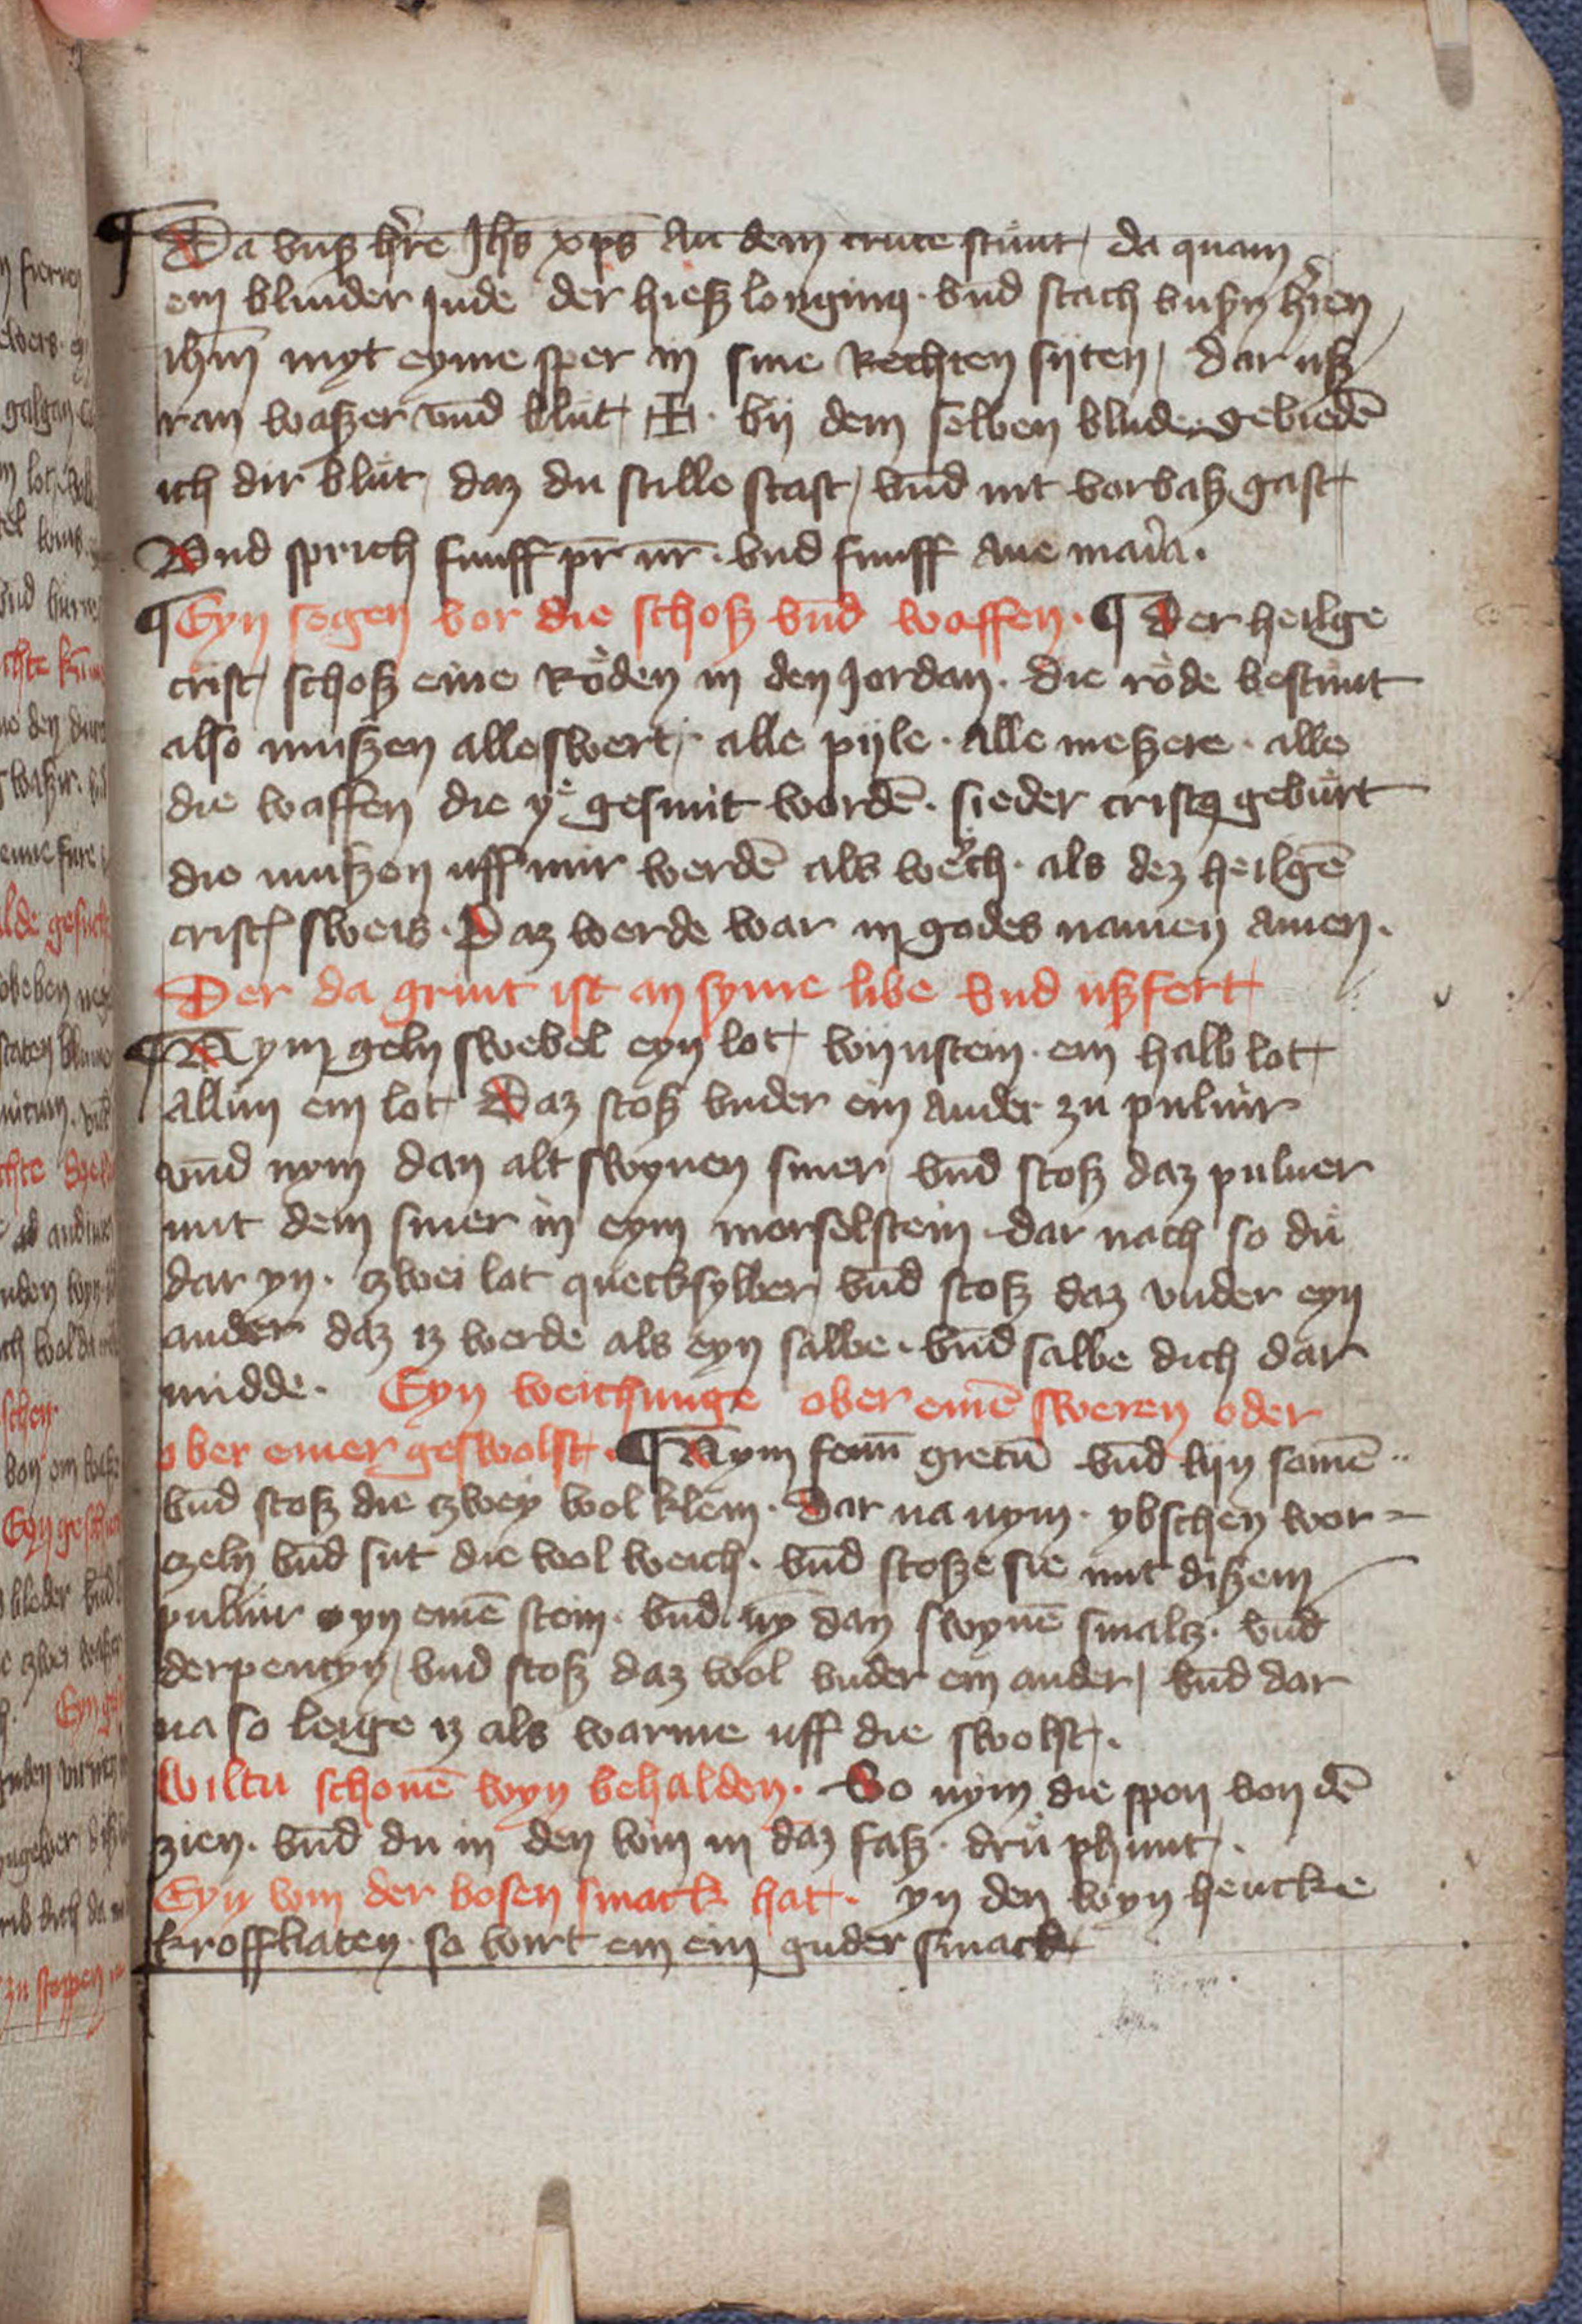 ¶ Da vnß h̛re Jhs̄ xp̄s An dem cruce stůnt / da quam
ein blinder Jude der hieß longinꝯ · vnd stach vnßn h̛ren
ihm̄ myt eyme sper in sine Rechten sijten / dar uß
ran waßer vnd blůt ✠ · bij dem selben blude gebiedē
ich dir blůt / daz du stille stast / vnd nit vorbaß gast
Vnd sprich funff pr̄ nr̄ · vnd funff Aue maria ·
¶ Eyn segen vor die schoß vnd waffen · ¶ Der heilge
crist / schoß eine Röden in den Jordan · die röde bestůnt
also mußen alle swert / · alle pijle · Alle meßere · alle
die waffen die ye gesmit wordē · sieder cristꝯ gebůrt
die mußen uff mir werdē als weich · als dez heilgē
crist sweis · Daz werde war in godes namen Amen ·
Der da grint ist an syme libe vnd ußfert
¶ Nym geln swebel eyn lot / wijnstein · ein halb lot
allun ein lot Daz stoß vnder ein Ander zu puluir
vnd nym dan alt swynen smer / vnd stoß daz puluer
mit dem smer in eym morselstein dar nach so du
dar yn · zwei lot quecksylber / vnd stoß daz vnder eyn
ander daz iz werde als eyn salbe · vnd salbe dich dar
midde · Eyn weichunge ober einē sweren oder
ober einer geswolst · ¶ Nym fenū grecū vnd lijn samē ··
vnd stoß die zwey wol klein · Dar na nym · ybschen wor-
zeln vnd sut die wol weich · vnd stoße sie mit dißem
puluir yn einē stein · vnd ny̅ dan swynē smalz · vnd
derpentyn / vnd stoß daz wol vnder ein ander / vnd dar
na so leige iz als warme uff die swolst / ·
Wiltu schonē wyn behalden · So nym die spon von dē
zien · vnd du in den win in daz faß · drü phunt / ·
Eyn win der bosen smack hat · yn den wyn hencke
kroffkaten · so wirt em ein guder smack